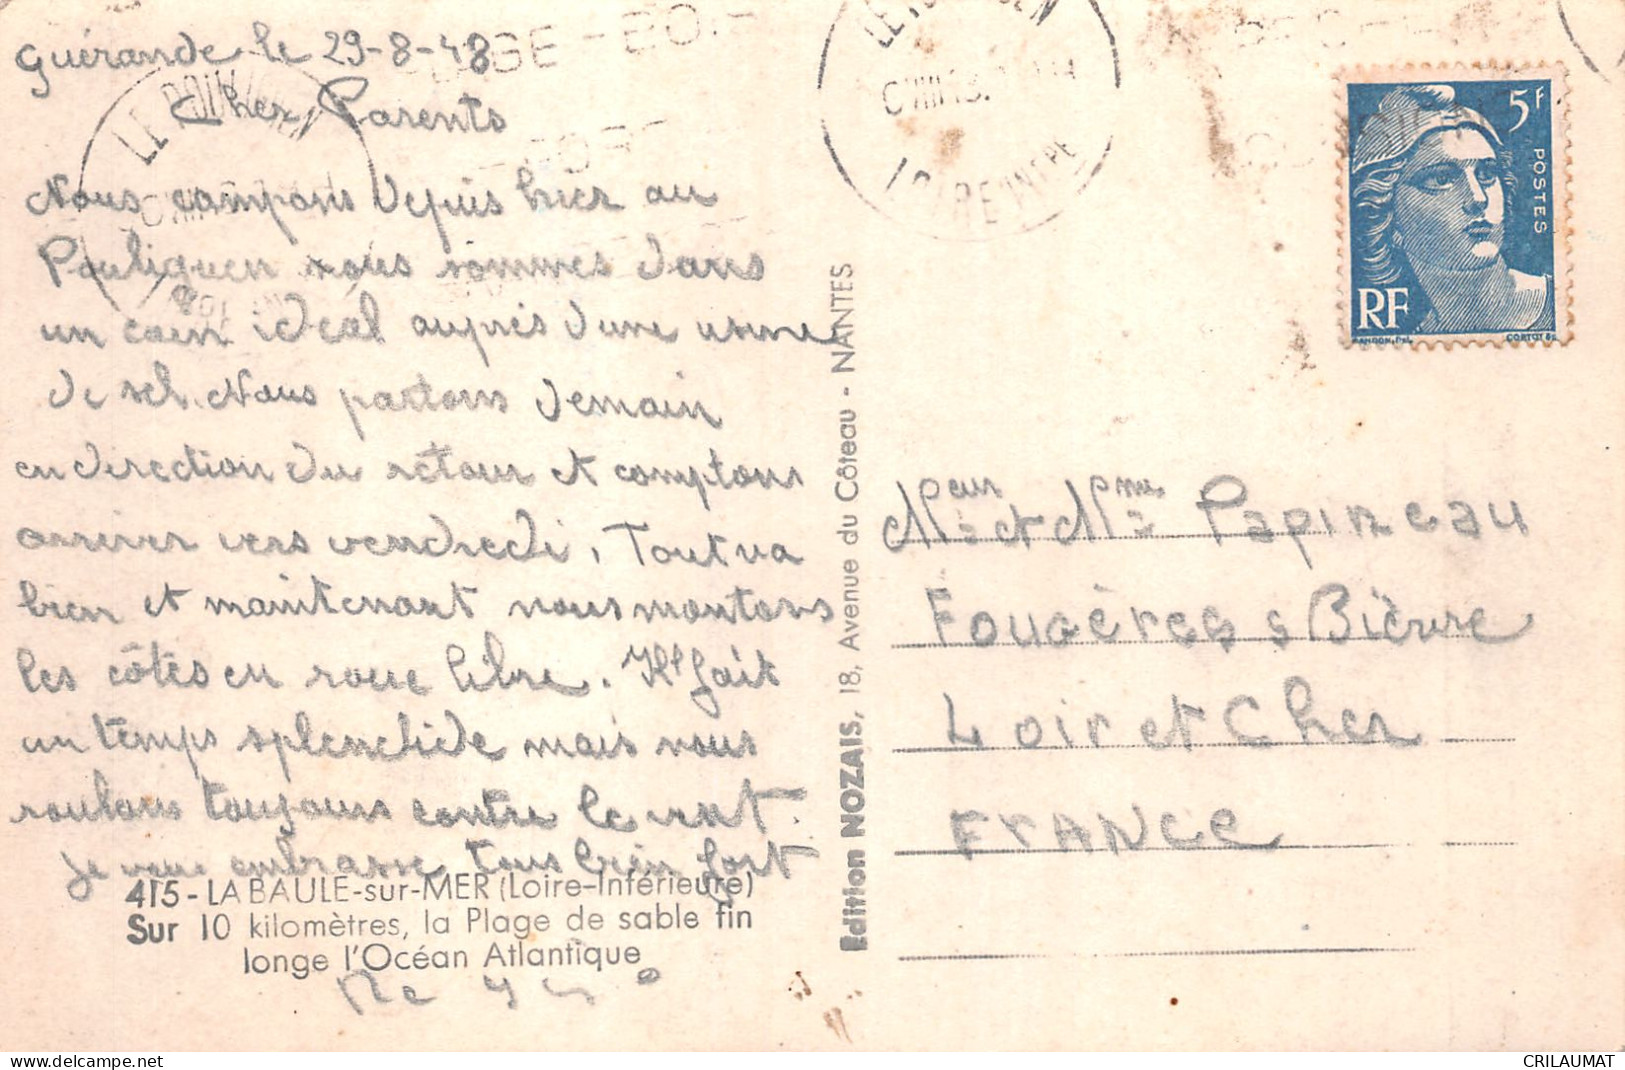 Guérande le 29-8-48
Cher Parents
Nous campons depuis hier au
Pouliguen nous sommes dans
un coin idéal auprès d'une usine
de sel. Nous partons demain
en direction du retour et comptons
arriver vers vendredi. Tout va
bien et maintenant nous montons
les côtes en roue libre. Il fait
un temps splendide mais nous
roulons toujours contre le vent.
Je vous embrasse tous bien fort
415 - LA BAULE-sur-MER (Loire-Inférieure)
Sur 10 kilomètres, la Plage de sable fin
longe l'Océan Atlantique
Edition NOZAIS, 18, Avenue du Côteau - NANTES
LE POULIGUEN
LOIRE INFRE
5F
POSTES
RF
GANDON. DEL.
CORTOT SC.
Mr et Mme Papineau
Fougères s Bièvre
Loir et Cher
FrANCe
www.delcampe.net
CRILAUMAT